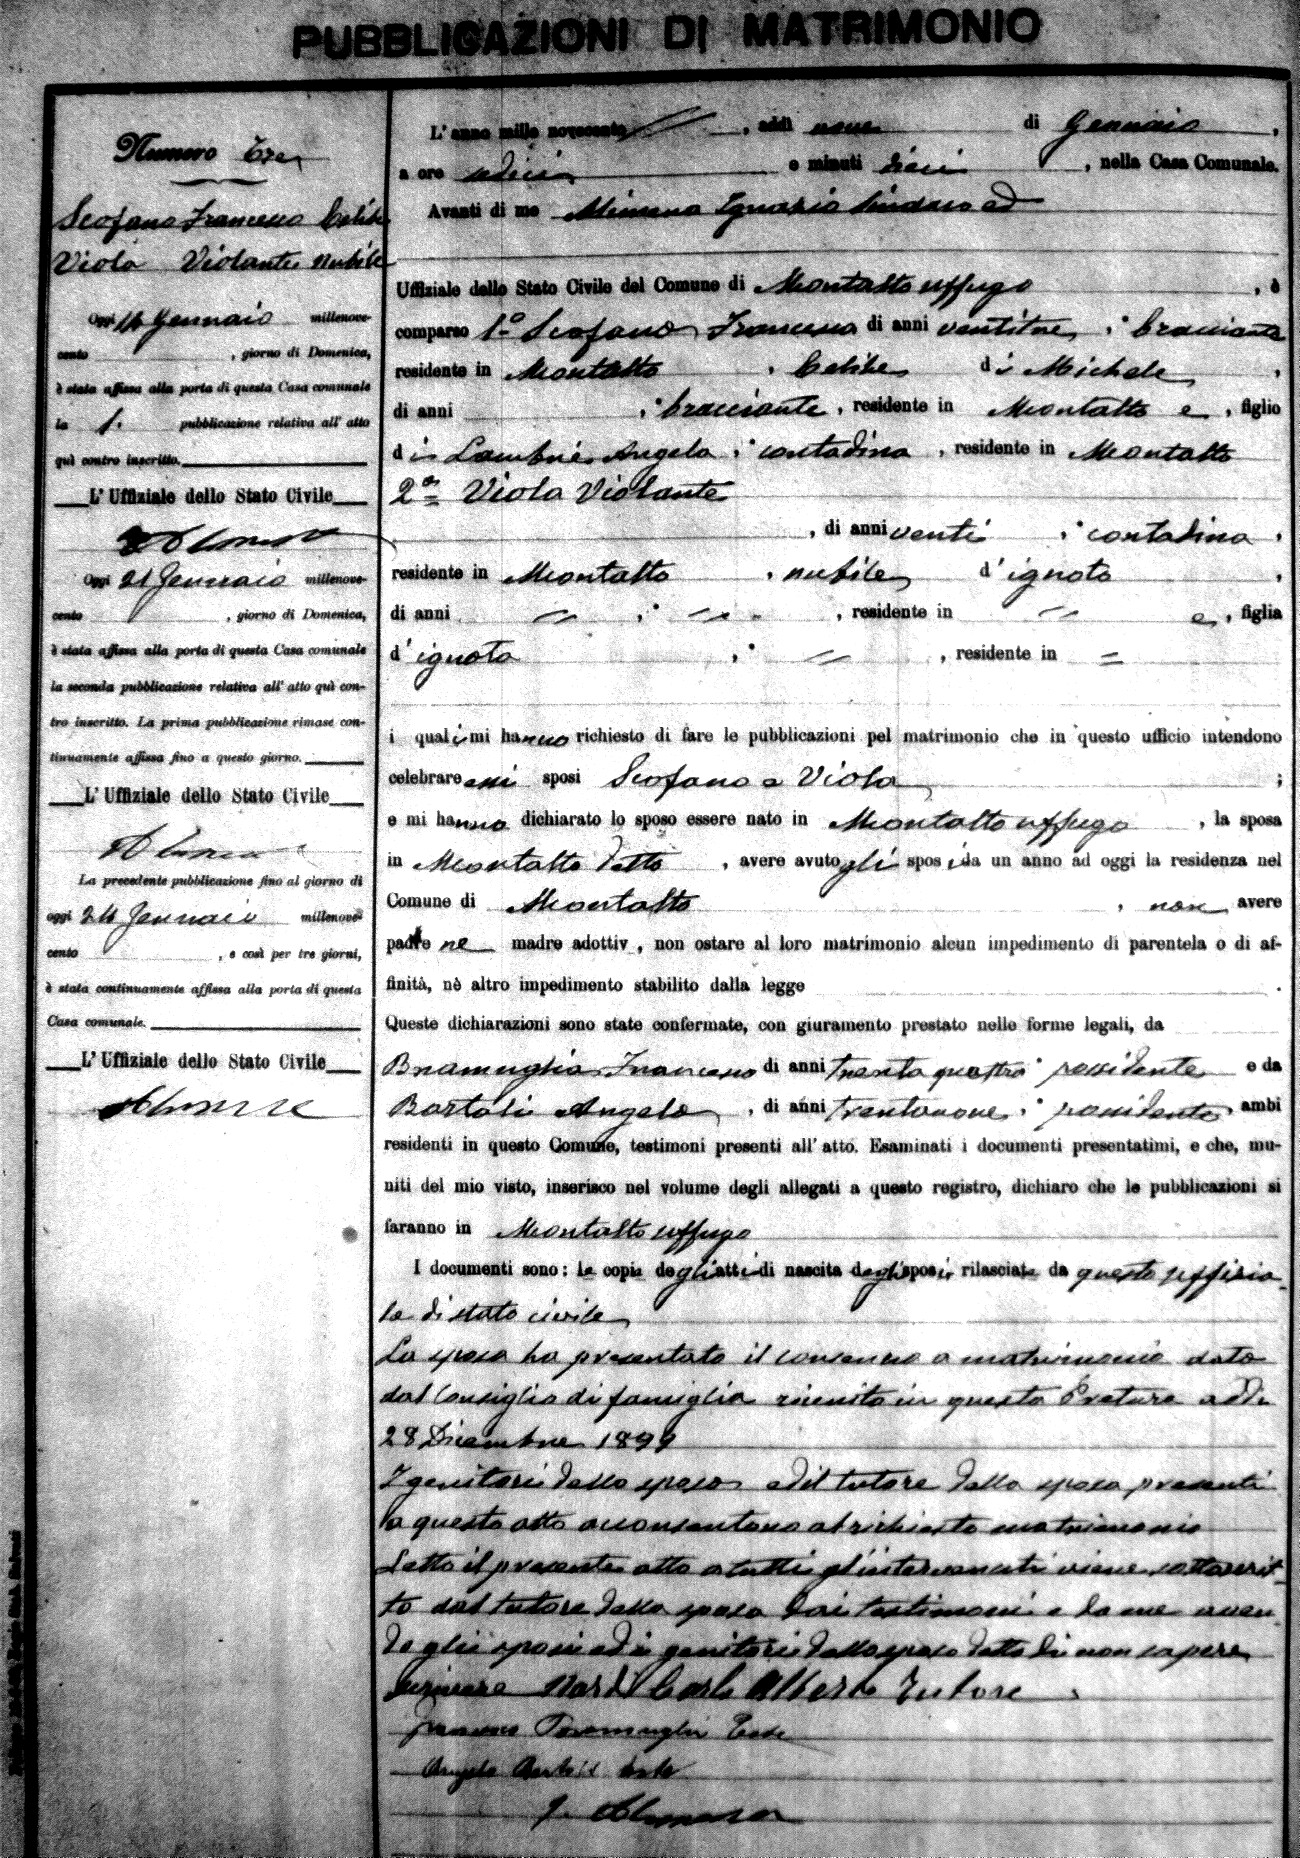 PUBBLICAZIONI DI MATRIMONIO
Numero Tre
Scofano Francesco Celibe
Viola Violante nubile
Oggi 14 Gennaio millenove-
cento , giorno di Domenica,
è stata affissa alla porta di questa Casa comunale
la 1. pubblicazione relativa all' atto
quì contro inscritto.
L' Uffiziale dello Stato Civile
Oggi 21 Gennaio millenove-
cento , giorno di Domenica,
è stata affissa alla porta di questa Casa comunale
la seconda pubblicazione relativa all' atto quì con-
tro inscritto. La prima pubblicazione rimase con-
tinuamente affissa fino a questo giorno.
L' Uffiziale dello Stato Civile
La precedente pubblicazione fino al giorno di
oggi 24 Gennaio millenove-
cento , e così per tre giorni,
è stata continuamente affissa alla porta di questa
Casa comunale.
L' Uffiziale dello Stato Civile
L' anno mille novecento // , addì nove di Gennaio ,
a ore sedici e minuti dieci , nella Casa Comunale.
Avanti di me Ignazio Sindaco ed
Uffiziale dello Stato Civile del Comune di Montalto uffugo , è
comparso 1° Scofano Francesco di anni ventitre , bracciante
residente in Montalto , Celibe di Michele ,
di anni , bracciante , residente in Montalto e , figlio
di Angela , contadina , residente in Montalto
2a Viola Violante
, di anni venti , contadina ,
residente in Montalto , nubile d' ignoto ,
di anni // , // , residente in // e , figlia
d' ignota , // , residente in =
i quali mi hanno richiesto di fare le pubblicazioni pel matrimonio che in questo ufficio intendono
celebrare essi sposi Scofano e Viola ;
e mi hanno dichiarato lo sposo essere nato in Montalto uffugo , la sposa
in Montalto detto , avere avuto gli sposi da un anno ad oggi la residenza nel
Comune di Montalto , non avere
padre ne madre adottiv , non ostare al loro matrimonio alcun impedimento di parentela o di af-
finità, nè altro impedimento stabilito dalla legge .
Queste dichiarazioni sono state confermate, con giuramento prestato nelle forme legali, da
Bramuglia Francesco di anni trenta quattro possidente e da
Bartoli Angelo , di anni trentanove , possidente ambi
residenti in questo Comune, testimoni presenti all' atto. Esaminati i documenti presentatimi, e che, mu-
niti del mio visto, inserisco nel volume degli allegati a questo registro, dichiaro che le pubblicazioni si
faranno in Montalto uffugo
I documenti sono: le copie degli atti di nascita degli sposi rilasciate da questo uffizia-
le di stato civile
La sposa ha presentato il consenso a matrimonio dato
dal Consiglio di famiglia riunito in questa Pretura addi
28 Dicembre 1899
I genitori dello sposo ed il tutore della sposa presenti
a questo atto acconsentono al richiesto matrimonio
Letto il presente atto a tutti gl'intervenuti viene sottoscrit-
to dal tutore della sposa dai testimoni e da me aven
do gli sposi ed i genitori dello sposo detto di non sapere
scrivere Nardi Carlo Alberto Tutore
Francesco Bramuglia Teste
Angelo Bartoli teste